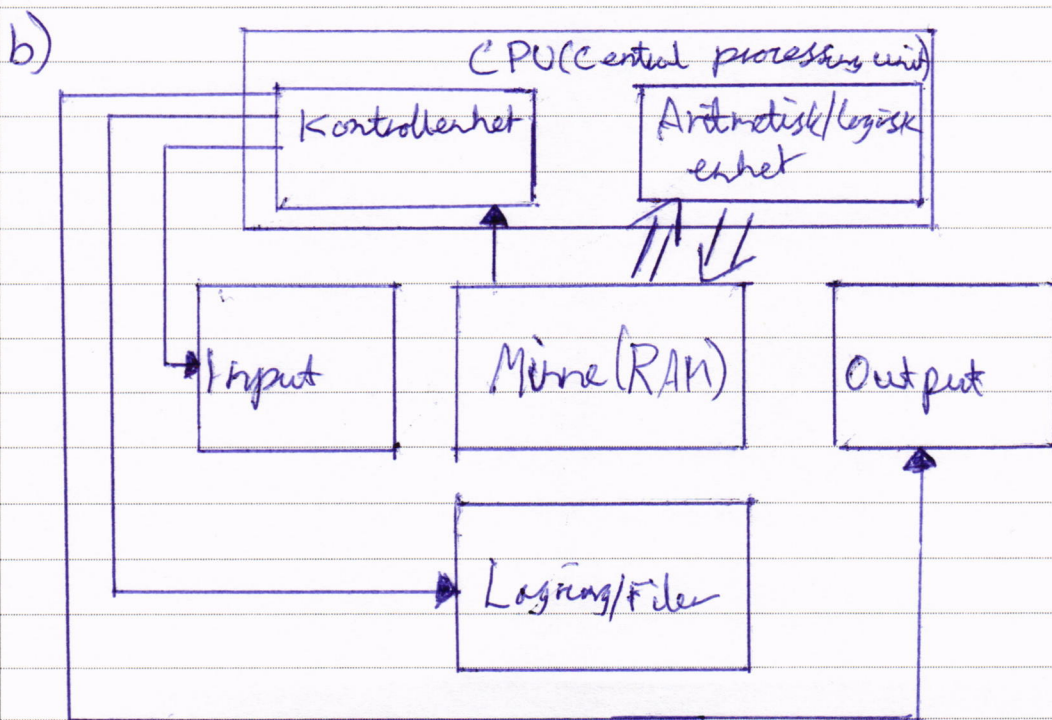 b)
CPU(Central processing unit)
Kontrollenhet
Aritmetisk/logisk
enhet
Input
Minne(RAM)
Output
Lagring/Filer